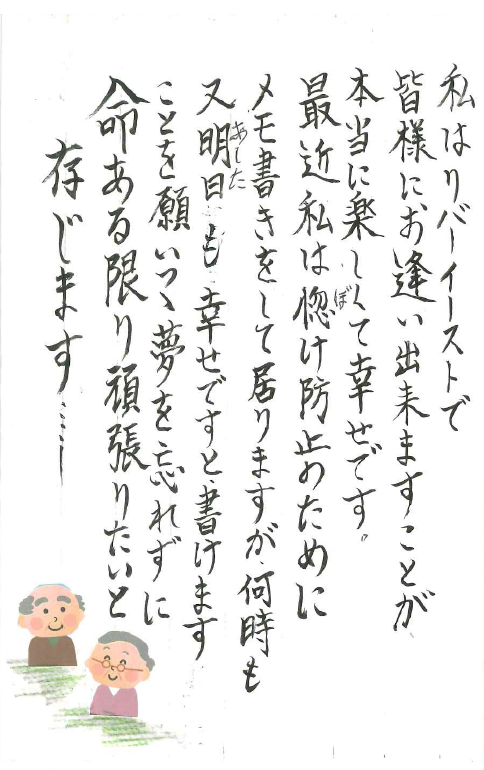 私はリバーイーストで
皆様にお逢い出来ますことが
本当に楽しくて幸せです。
最近私は惚け防止のために
ぼ
メモ書きをして居りますが、何時も
又明日も幸せですと書けます
あした
ことを願いつつ夢を忘れずに
命ある限り頑張りたいと
存じます……